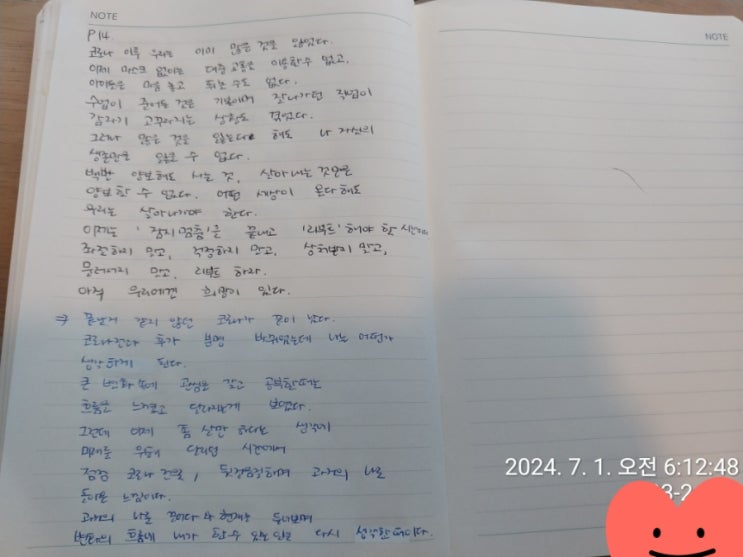 NOTE
P14.
코로나 이후 우리는 이미 많은 것을 잃었다.
이제 마스크 없이는 대중교통을 이용할 수 없고,
아이들은 마음 놓고 뛰는 수도 없다.
수업이 줄어드는 것은 기본이며 잘나가던 직업이
갑자기 고꾸라지는 상황도 겪었다.
그러나 많은 것을 잃는다 해도 나 자신의
생존만은 잃을 수 없다.
백번 양보해도 사는 것, 살아내는 것만은
양보할 수 없다. 어떤 세상이 온다해도
우리는 살아나가야 한다.
이제는 '잠시멈춤'을 끝내고 '리부트'해야 할 시간이다
좌절하지 말고, 걱정하지 말고, 상처받지 말고,
물러서지 말고, 리부트 하자.
아직 우리에겐 희망이 있다.
⇒ 끝날거 같지 않던 코로나가 끝이 났다.
코로나 전과 후가 분명 바뀌었는데 나는 어떤가
생각하게 된다.
큰 변화 속에 관심을 갖고 공부할때는
흐름을 느끼고 달라지는게 보였다.
그런데 이제 좀 살만 하다는 생각에
미래를 향해 달리던 시간에서
점점 코로나 전을, 뒷걸음질하며 과거의 나로
돌아온 느낌이다.
과거의 나를 현재는 되돌아보며
변화의 흐름에 내가 할 수 있는 일을 다시 생각할 때이다.
NOTE
2024. 7. 1. 오전 6:12:48